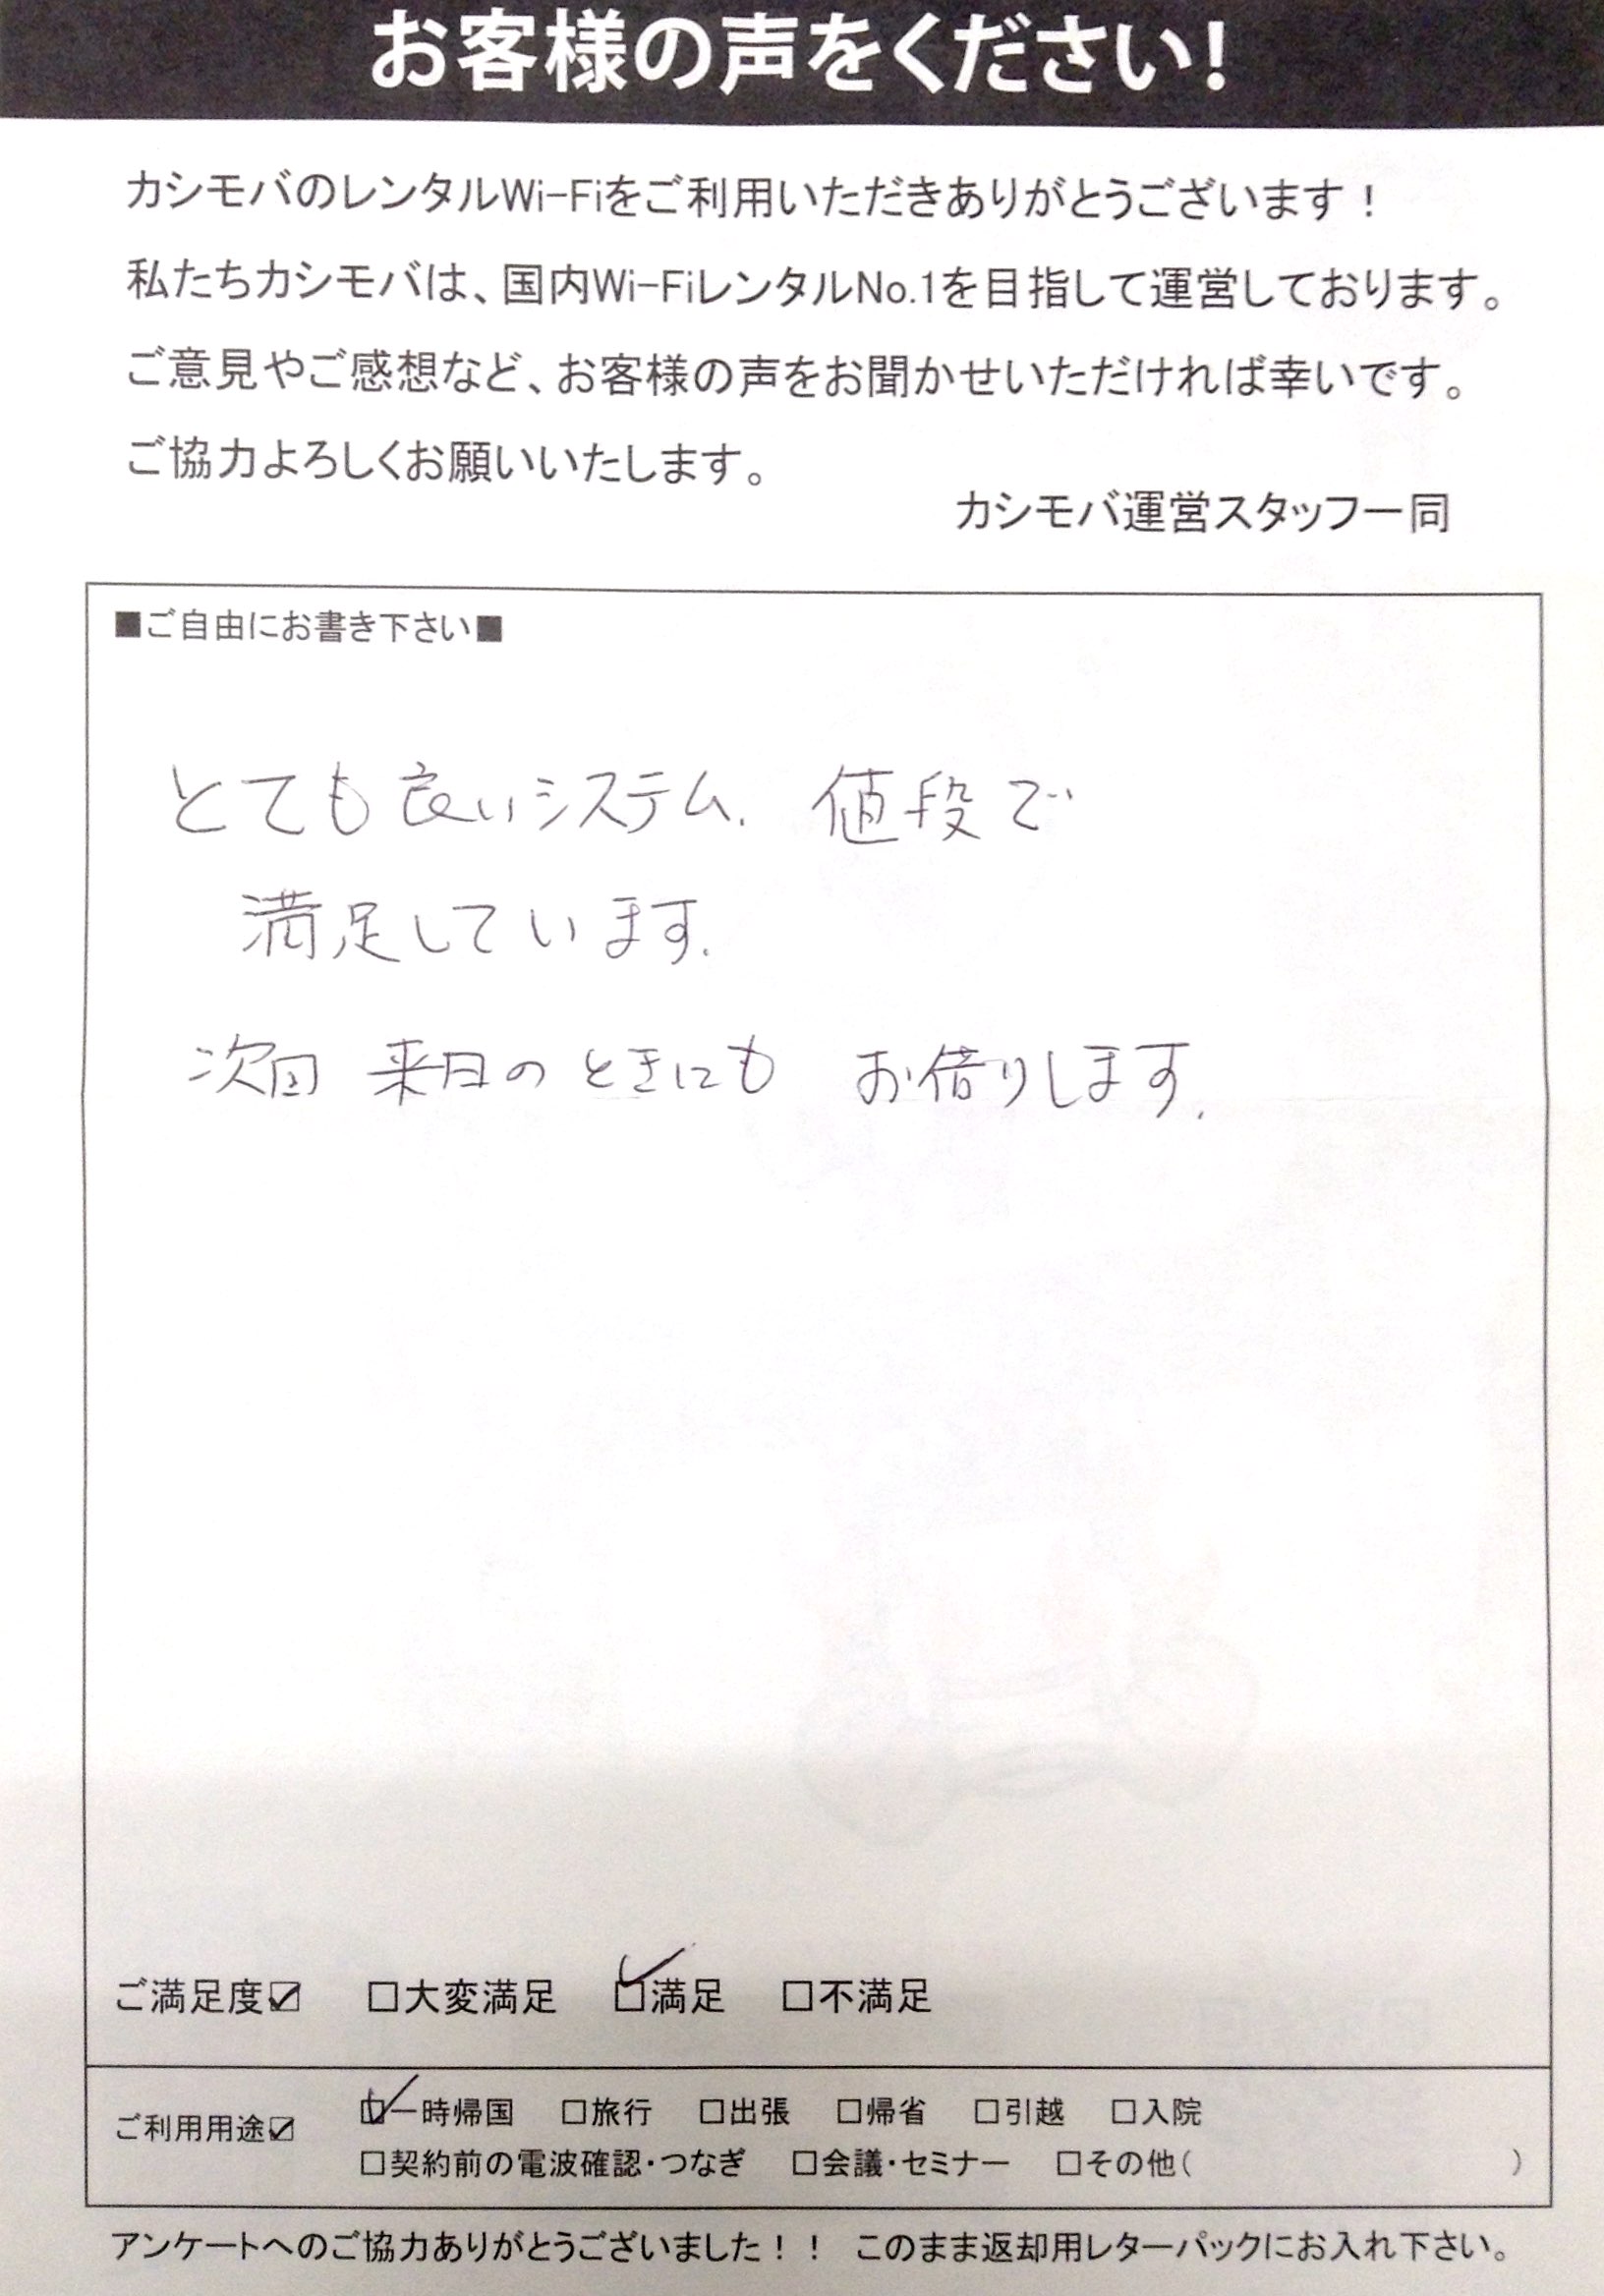 お客様の声をください!
カシモバのレンタルWi-Fiをご利用いただきありがとうございます！
私たちカシモバは、国内Wi-FiレンタルNo.1を目指して運営しております。
ご意見やご感想など、お客様の声をお聞かせいただければ幸いです。
ご協力よろしくお願いいたします。
カシモバ運営スタッフ一同
■ご自由にお書き下さい■
とても良いシステム. 値段で
満足しています.
次回 来日のときにも お借りします.
ご満足度☑ □大変満足 ☑満足 □不満足
ご利用用途☑ ☑一時帰国 □旅行 □出張 □帰省 □引越 □入院
□契約前の電波確認・つなぎ □会議・セミナー □その他( )
アンケートへのご協力ありがとうございました！！ このまま返却用レターパックにお入れ下さい。